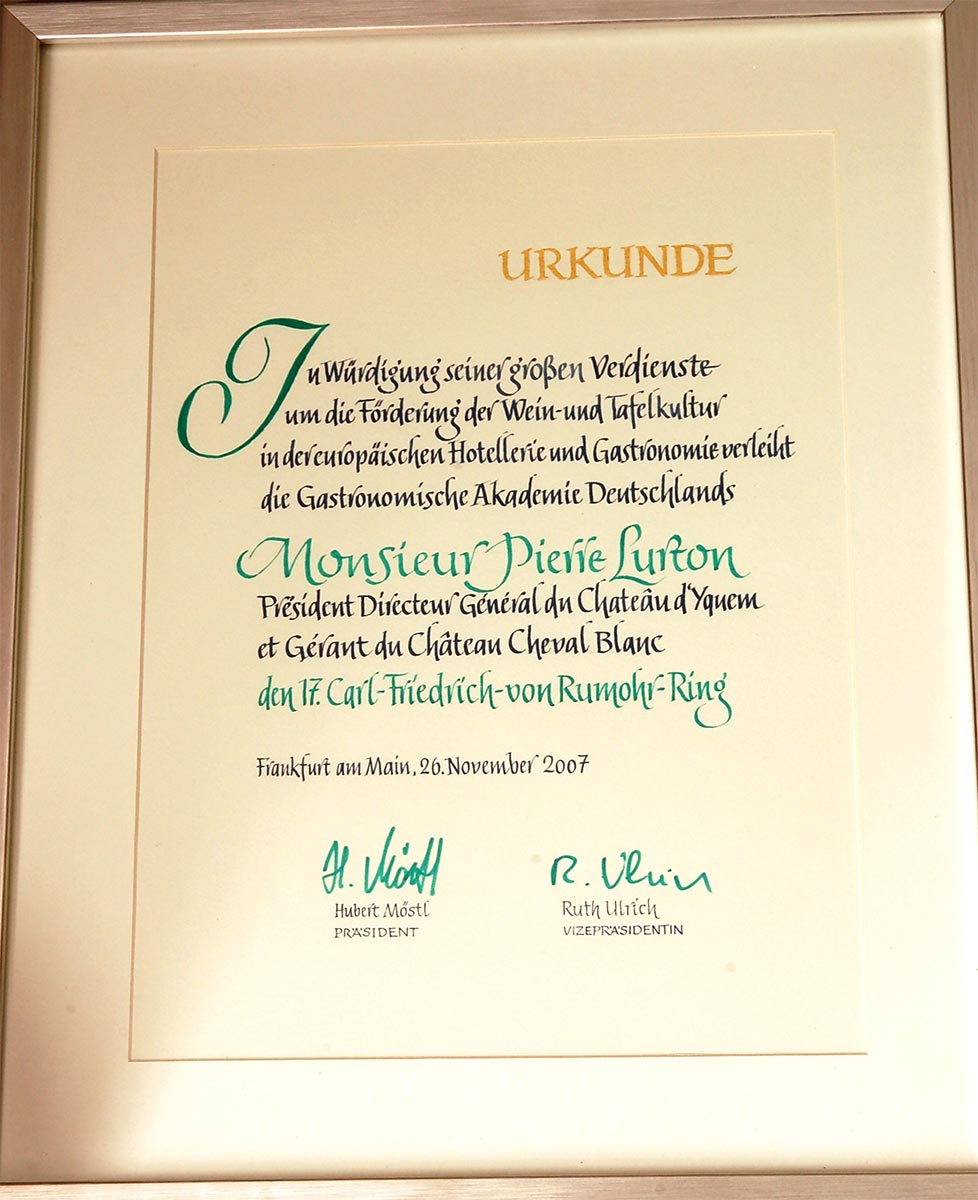 URKUNDE
In Würdigung seiner großen Verdienste
um die Förderung der Wein- und Tafelkultur
in der europäischen Hotellerie und Gastronomie verleiht
die Gastronomische Akademie Deutschlands
Monsieur Pierre Lurton
Président Directeur Général du Chateâu d'Yquem
et Gérant du Château Cheval Blanc
den 17. Carl-Friedrich-von Rumohr-Ring
Frankfurt am Main, 26. November 2007
H. Möstl R. Ulrich
Hubert Möstl Ruth Ulrich
PRÄSIDENT VIZEPRÄSIDENTIN